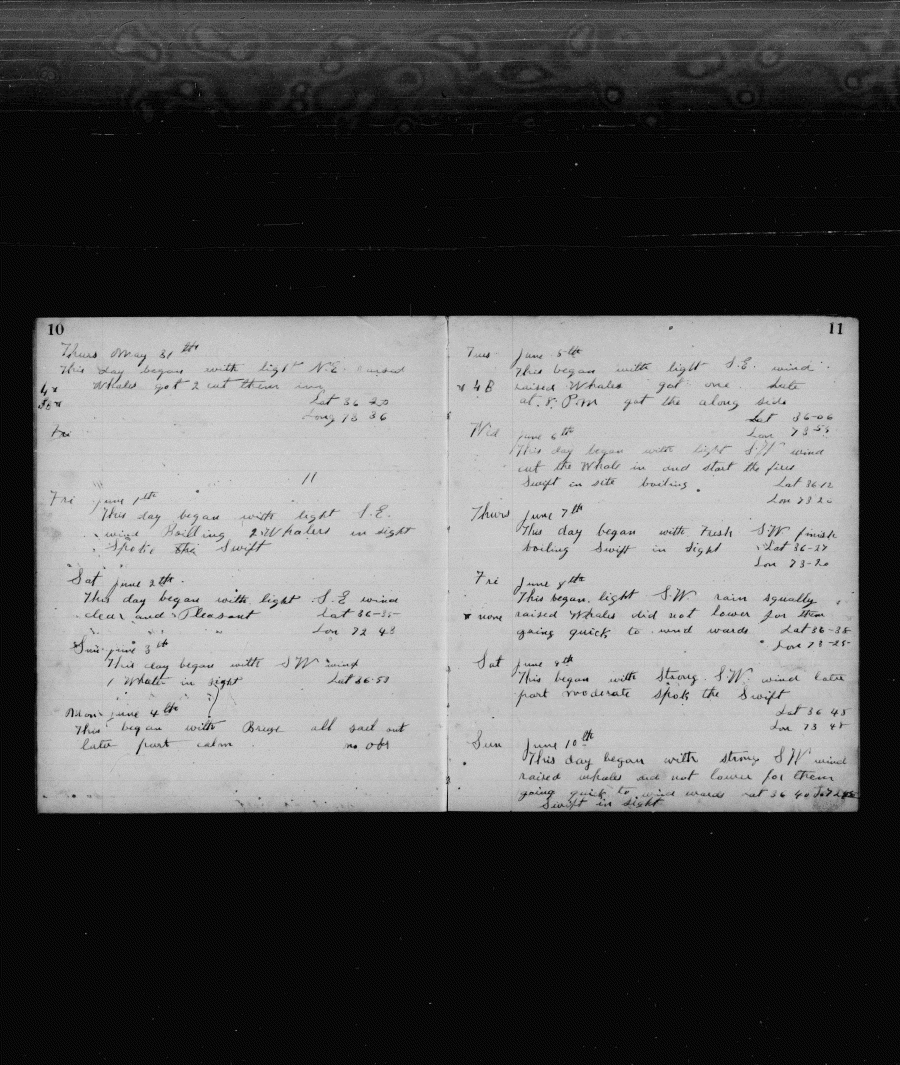 10
Thurs May 31th
This day began with light N.E. raised
Whales got 2 cut them in
Lat 36 20
Long 73 36
Fri
11
Fri june 1th
This day began with light S.E.
wind Boiling 2 Whalers in sight
Spok the Swift
Sat june 2th
This day began with light S.E wind
clear and Pleasant Lat 36-35
Lon 72 43
Sun june 3th
This day began with SW wind
1 Whaler in sight Lat 36-53
Mon june 4th
This began with Breze all sail out
later part calm no obs
11
Tues june 5th
This began with light S.E. wind
4B raised Whales got one late
at 8 P.M got the along side
Lat 36-06
Lon 73-53
Wed june 6th
This day began with light SW wind
cut the Whale in and start the fires
Swift in site boiling Lat 36 12
Lon 73 20
Thurs june 7th
This day began with Fresh SW finish
boiling Swift in sight Lat 36-27
Lon 73-20
Fri june 8th
This began light S.W. rain squally
none raised Whales did not lower for them
going quick to wind wards Lat 36-38
Lon 73-25
Sat june 9th
This began with Strong S.W. wind later
part Moderate Spok the Swift
Lat 36 45
Lon 73 48
Sun june 10th
This day began with strong SW wind
raised whales did not lower for them
going quick to wind wards Lat 36 40
Swift in sight